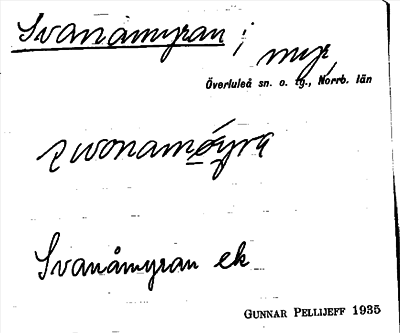 Svanåmyran ; myr,
Överluleå sn. o. tg., Norrb. län
Svanåmyran ek
GUNNAR PELLIJEFF 1935